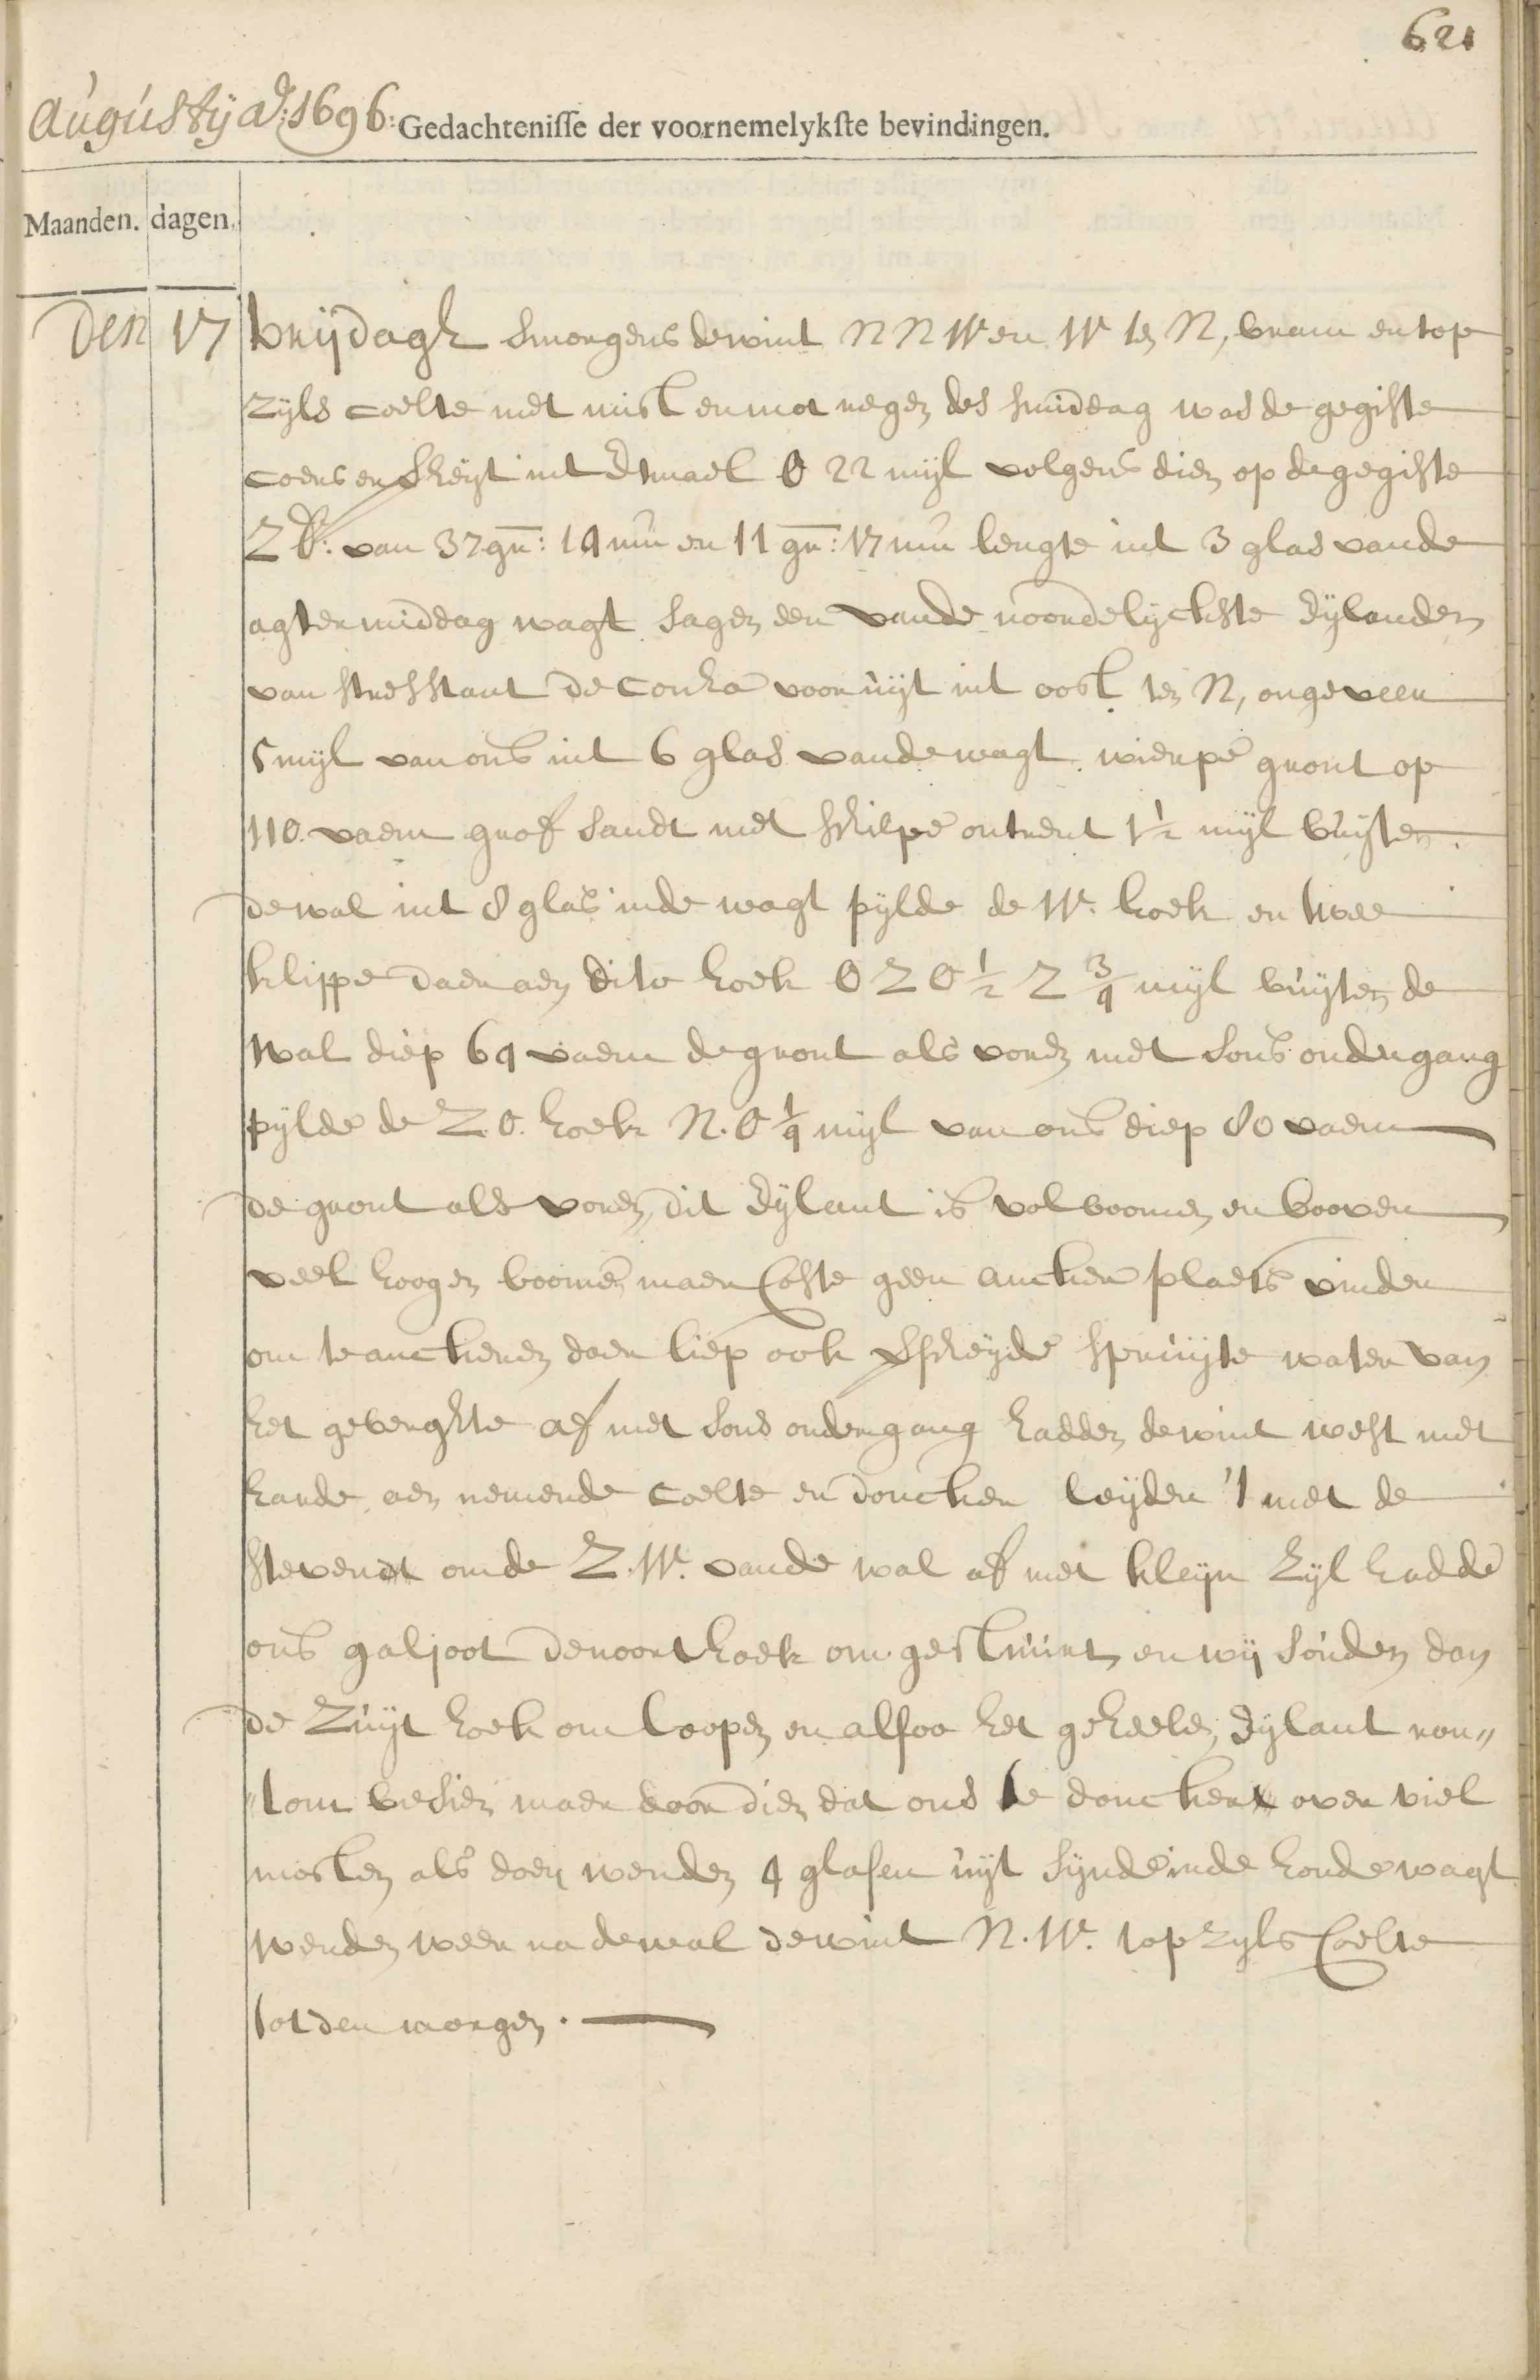 621
Augustÿ ao: 1696: Gedachtenisse der voornemelykste bevindingen.
Maanden. dagen.
Den 17 vrijdagh smorgens dewint NNW en W ten N, bram en top
zijls coelte met mist en mot regen des smiddag was de gegiste
coers en verheijt int Etmael O 22 mijl volgens dien op de gegiste
ZBr: van 37 gr: 14 mu en 11 gr: 17 mu lengte int 3 glas vande
agtermiddag wagt sagen een vande noordelijckste Eijlanden
van tristtant de conha vooruijt int oost ten N, ongeveer
5 mijl van ons int 6 glas vande wagt wierpe gront op
110 vaem grof sandt met schilpe ontrent 1½ mijl buijten
dewal int 8 glas inde wagt pijlde de W. hoek en twee
klippe daer aen dito hoek OZO ½ Z ¾ mijl buijten de
wal diep 64 vaem de gront als voren met sons ondergang
pijlde de Z.O. hoek N.O ¼ mijl van ons diep 80 vaem
de gront als voren, dit Eijlant is vol boomen en booven
veel hoogen boomen maer Coste geen ancker plaets vinden
om te anckeren daer liep ook verscheijde spruijte water van
het geberghte af met sons ondergang hadden dewint west met
harde aen nemende coelte en doncker leijden 't met de
steven om de Z.W. vande wal af met kleijn zijl hadde
ons galjoot de noort hoek om gestuurt, en wij souden dan
de zuijt hoek om loopen en alsoo het geheele Eijlant ron„
„tom besien maer door dien dat ons de doncker over viel
mosten als doen wenden 4 glasen uijt sijnde inde hondewagt
wenden weer na dewal dewint N.W. topzijls Coelte
tot den morgen.